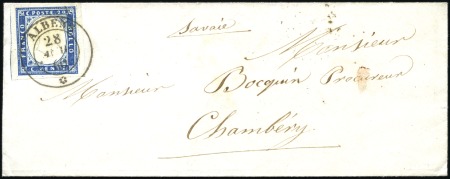 Savoie
Monsieur
Monsieur Bocquin Procureur
Chambéry
FRANCO
C. POSTE 20
BOLLO
ALBEN
28